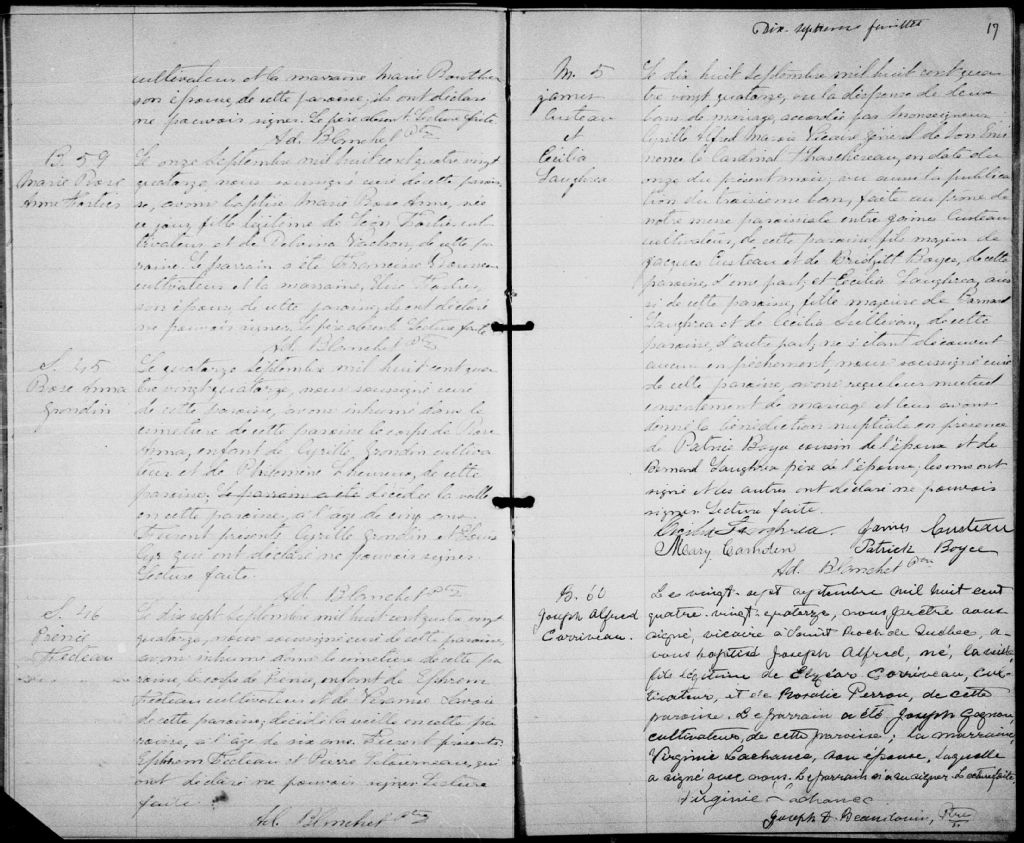 cultivateur et la marraine Marie Bouthier
son épouse, de cette paroisse; ils ont déclaré
ne pouvoir signer. Le père absent. Lecture faite
Ad. Blanchet Ptre
B. 59
Marie Rose
Anne Fortier
Le onze septembre mil huit cent quatre vingt
quatorze, nous soussigné curé de cette parois-
se, avons baptisé Marie Rose Anne, née
ce jour, fille légitime de Léon Fortier cul-
tivateur et de Delvina Vachon, de cette pa-
roisse. Le parrain a été
cultivateur et la marraine, Elise Fortier,
son épouse, de cette paroisse, ils ont déclaré
ne pouvoir signer, le père absent. Lecture faite
Ad. Blanchet Ptre
S. 45
Rose Anna
Grondin
Le quatorze septembre mil huit cent qua-
tre vingt quatorze, nous soussigné curé
de cette paroisse, avons inhumé dans le
cimetière de cette paroisse le corps de Rose
Anna, enfant de Cyrille Grondin cultiva-
teur et de Philomène Lheureux, de cette
paroisse, le parrain a été décédée la veille
en cette paroisse, à l'âge de cinq ans.
Furent présents Cyrille Grondin et Louis
Cyr qui ont déclaré ne pouvoir signer.
Lecture faite.
Ad. Blanchet Ptre
S. 46
Fecteau
Le dix sept septembre mil huit cent quatre vingt
quatorze, nous soussigné curé de cette paroisse,
avons inhumé dans le cimetière de cette pa-
roisse, le corps de enfant de Ephrem
Fecteau cultivateur et de Lavoie
de cette paroisse; décédé la veille en cette pa-
roisse, à l'âge de six ans. Furent présents
Ephrem Fecteau et Pierre Letourneau, qui
ont déclaré ne pouvoir signer Lecture
faite.
Ad. Blanchet Ptre
Dix-septième feuillet
17
M. 5
James
Custeau
et
Cécilia
Laughrea
Le dix huit septembre mil huit cent qua-
tre vingt quatorze, vu la dispense de deux
bans de mariage, accordée par Monseigneur
Cyrille Alfred Marois Vicaire général de Son Emi-
nence le Cardinal Thaschereau, en date du
onze du présent mois; vu aussi la publica-
tion du troisième ban, faite au prône de
notre messe paroissiale entre James Custeau
cultivateur, de cette paroisse, fils majeur de
Jacques Custeau et de Bridgitt Boyce, de cette
paroisse, d'une part; et Cécilia Laughrea, aus-
si de cette paroisse, fille majeure de Bernard
Laughrea et de Cécilia Sullivan, de cette
paroisse, d'autre part; ne s'étant découvert
aucun empêchement, nous soussigné curé
de cette paroisse, avons reçu leur mutuel
consentement de mariage et leur avons
donné la bénédiction nuptiale en présence
de Patrice Boyce cousin de l'époux et de
Bernard Laughrea père de l'épouse; les uns ont
signé et les autres ont déclaré ne pouvoir
signer. Lecture faite.
Cecilia James Custeau
Mary Patrick Boyce
Ad. Blanchet Ptre
B. 60
Joseph Alfred
Corriveau.
Le vingt-sept septembre mil huit cent
quatre-vingt-quatorze, nous prêtre sous-
signé, vicaire à Saint Roch de Québec, a-
vons baptisé Joseph Alfred, né, la veille
fils légitime de Elzéar Corriveau, cul-
tivateur, et de Rosalie Perron, de cette
paroisse. Le parrain a été Joseph Gagnon,
cultivateur, de cette paroisse; la marraine,
Virginie Lachance, son épouse, laquelle
a signé avec nous. Le parrain n'a su signer. Lecture faite.
Virginie Lachance
Joseph D. Beaudouin, Ptre